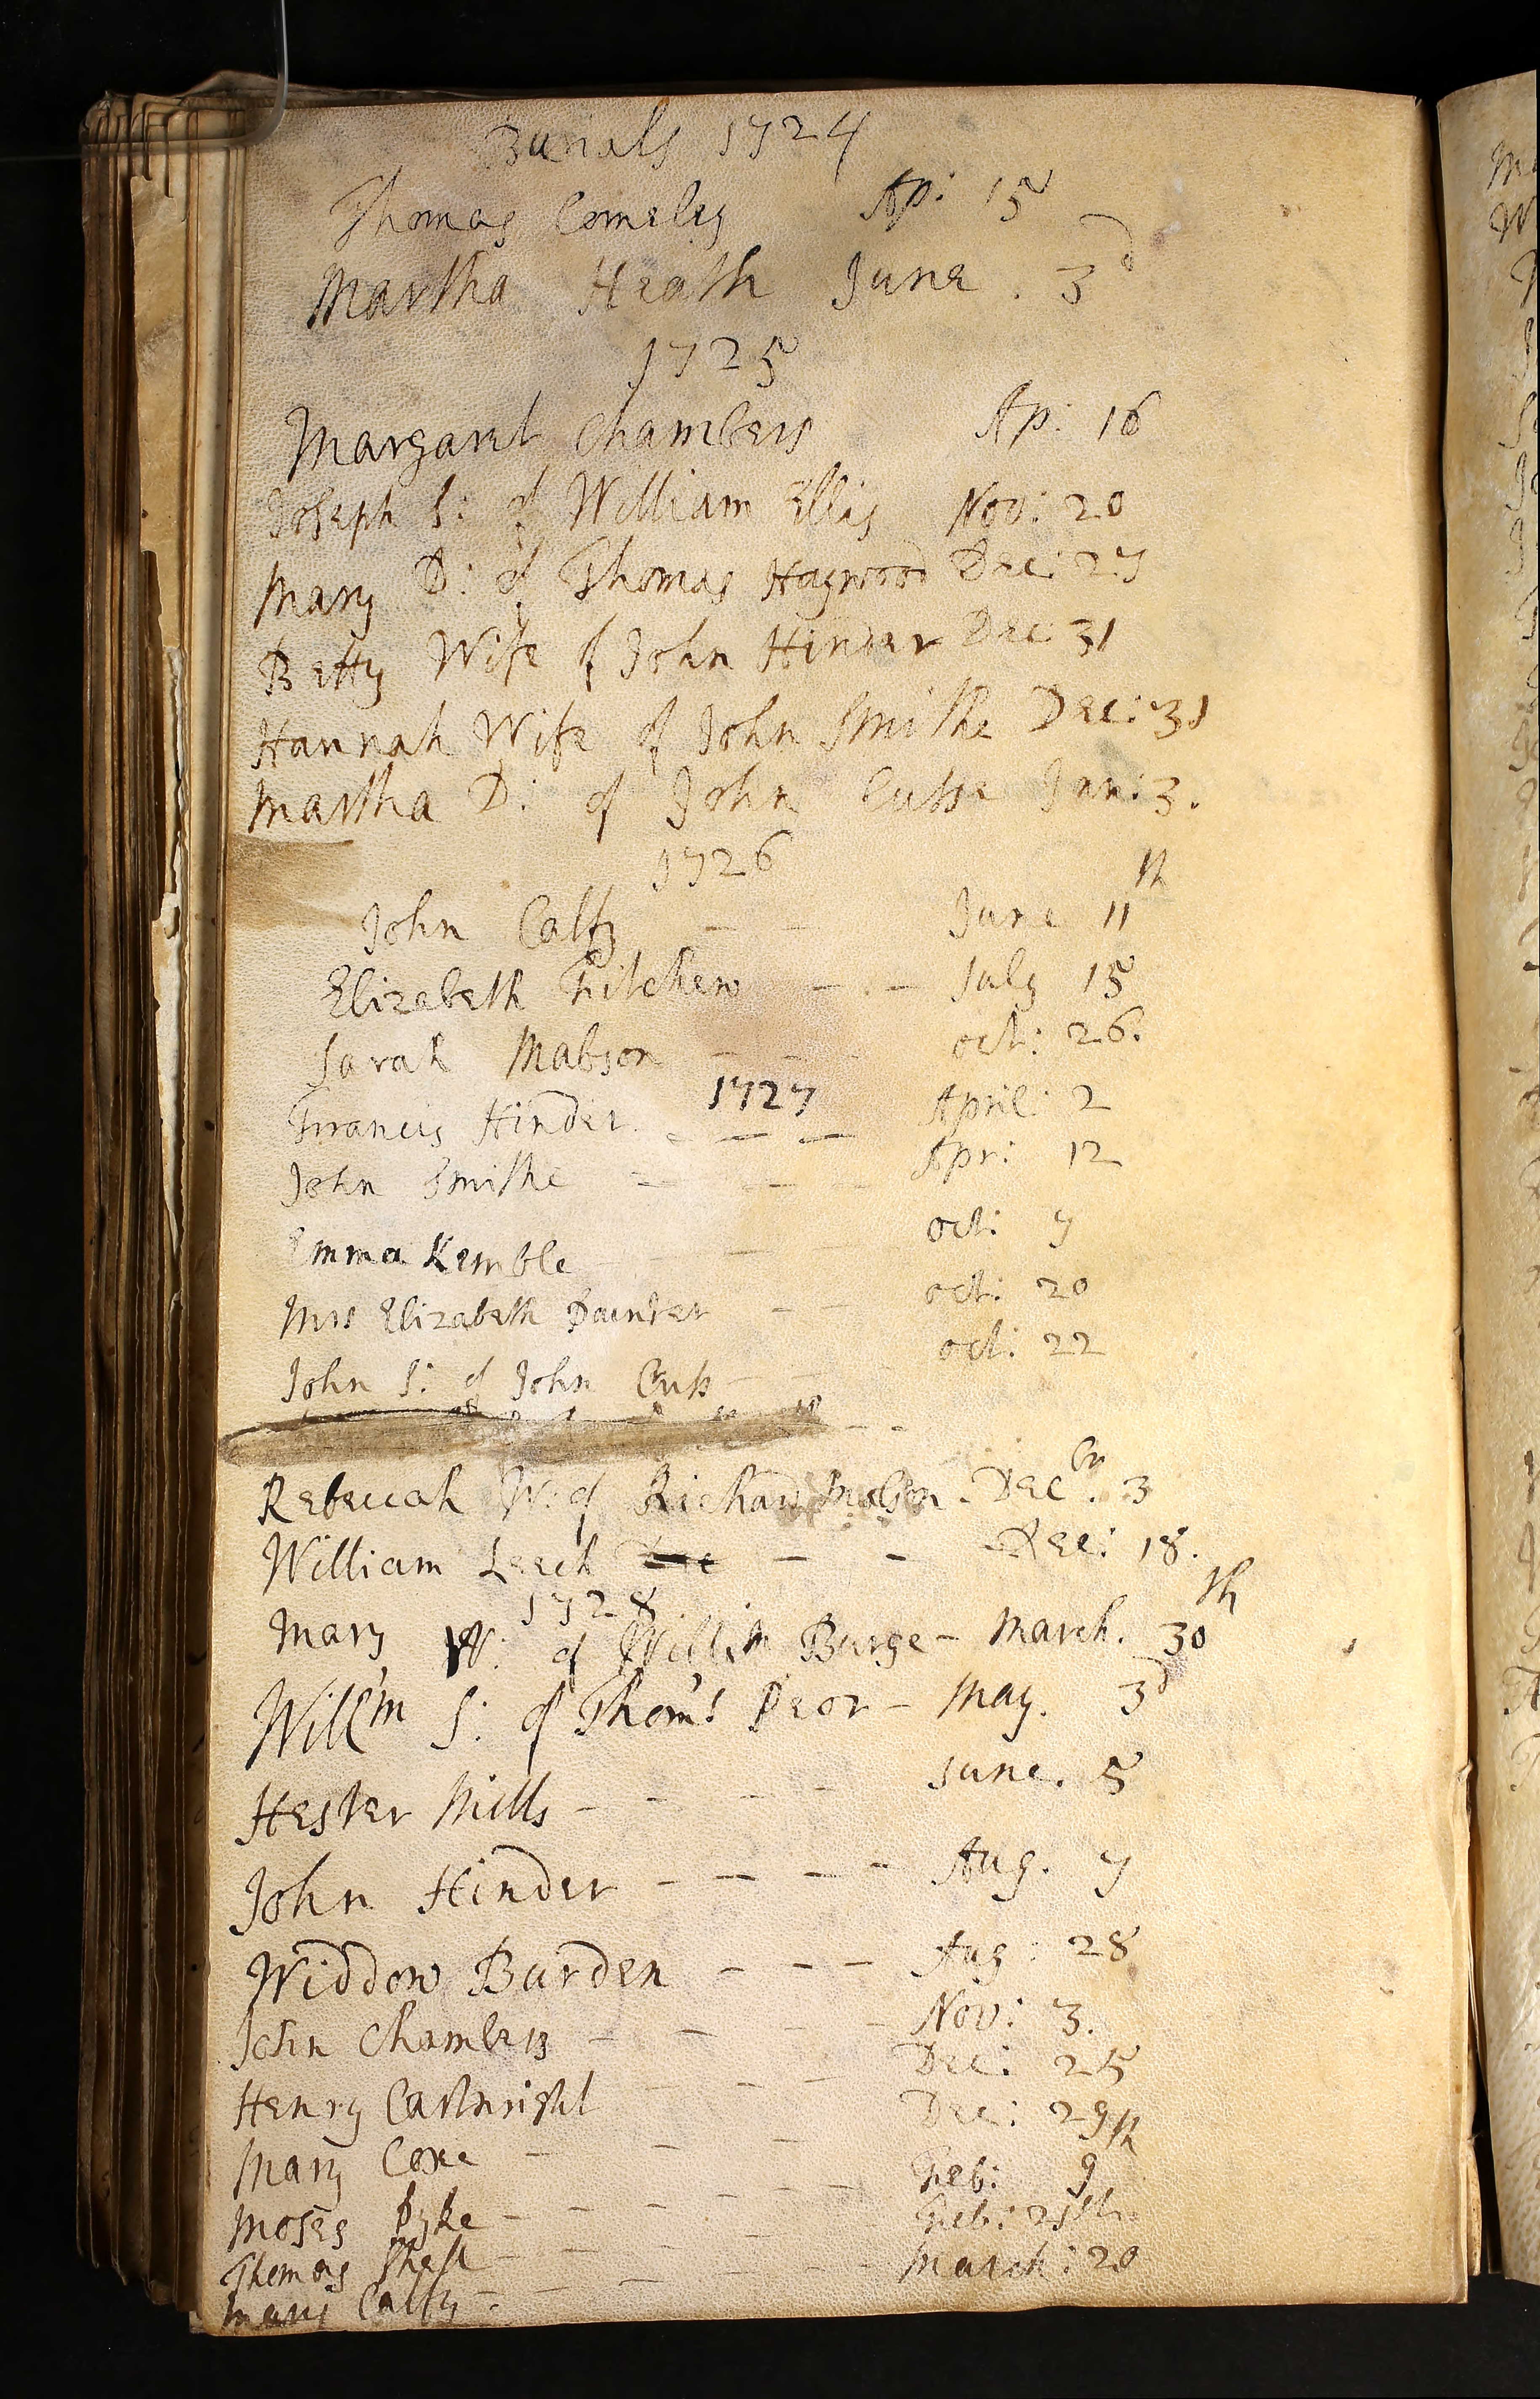 Burials 1724
Thomas Comeley Ap: 15
Martha Heath June. 3d
1725
Margaret Chambers Ap: 16
Joseph S: of William Ellis Nov: 20
Mary D: of Thomas Haywood Dec: 27
Betty Wife of John Hinder Dec: 31
Hannah Wife of John Smithe Dec: 31
Martha D: of John Cusse Jan: 3.
1726
John Calfy - - June 11th
Elizabeth Fitchew - - July 15
Sarah Mabson - - Oct: 26.
1727
Francis Hinder. - - - April: 2
John Smithe - - - Apr: 12
Emma Kemble - - - Oct: 7
Mrs Elizabeth Painter - - Oct: 20
John S: of John Cuss - - Oct: 22
Rebeccah W: of Richard Mabson. Decbr. 3
William Leech - - Dec: 18.
1728
Mary W: of Will'm Burge - March. 30th
Will'm S: of Thom's Deor - May. 3d
Hester Mills - - - June. 5
John Hinder - - - - Aug. 7
Widdow Burden - - - Aug: 28
John Chambers - - - - Nov: 3.
Henry Cartwright - - - Dec: 25
Mary Coxe - - - Dec: 29
Moses Pyke - - - - - Feb: 9th
Thomas - - - - Feb: 25th
Mary Calfy - - - - - March: 20